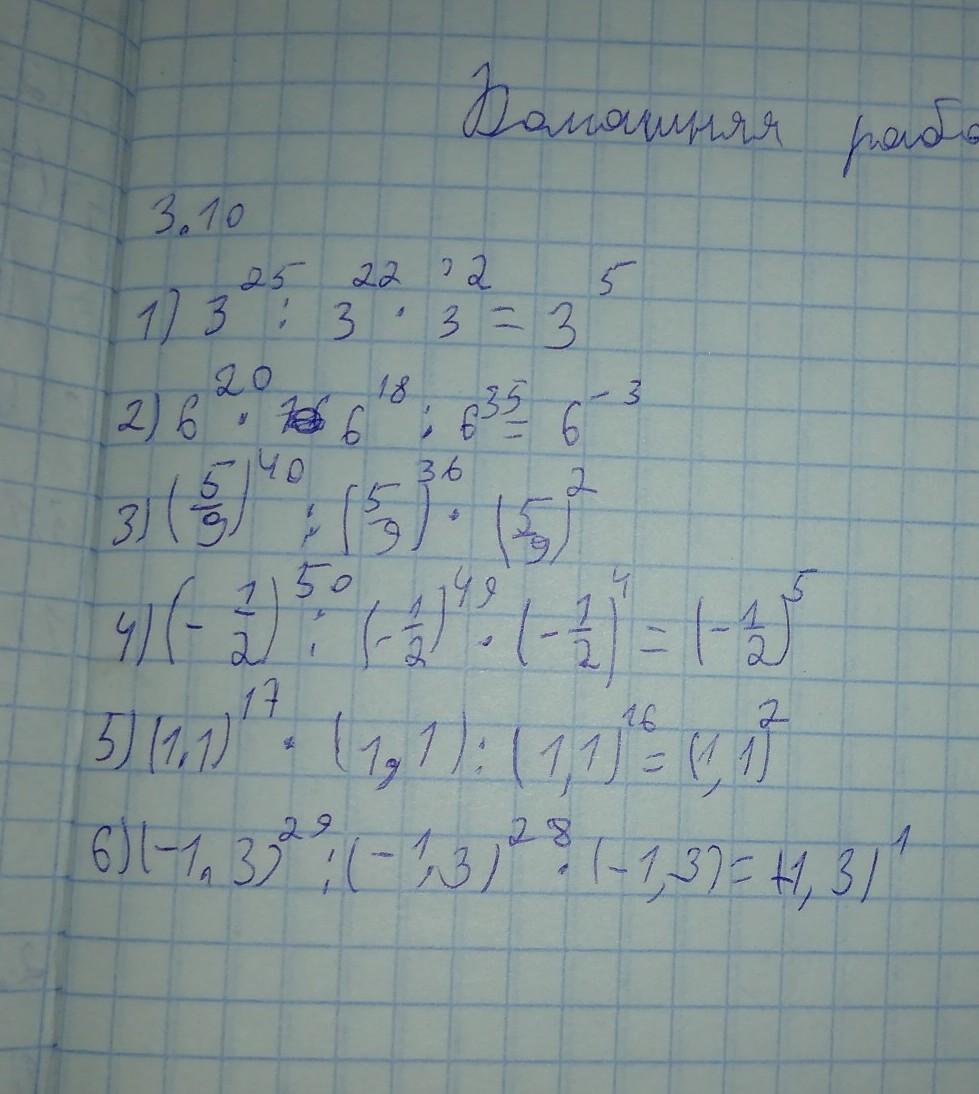 Домашняя рабо
3.10
1) 3²⁵ : 3²² · 3² = 3⁵
2) 6²⁰ · 6¹⁸ : 6³⁵ = 6⁻³
3) (5/9)⁴⁰ : (5/9)³⁶ · (5/9)²
4) (-1/2)⁵⁰ : (-1/2)⁴⁹ · (-1/2)⁴ = (-1/2)⁵
5) (1,1)¹⁷ · (1,1) : (1,1)¹⁶ = (1,1)²
6) (-1,3)²⁹ : (-1,3)²⁸ · (-1,3) = (-1,3)¹